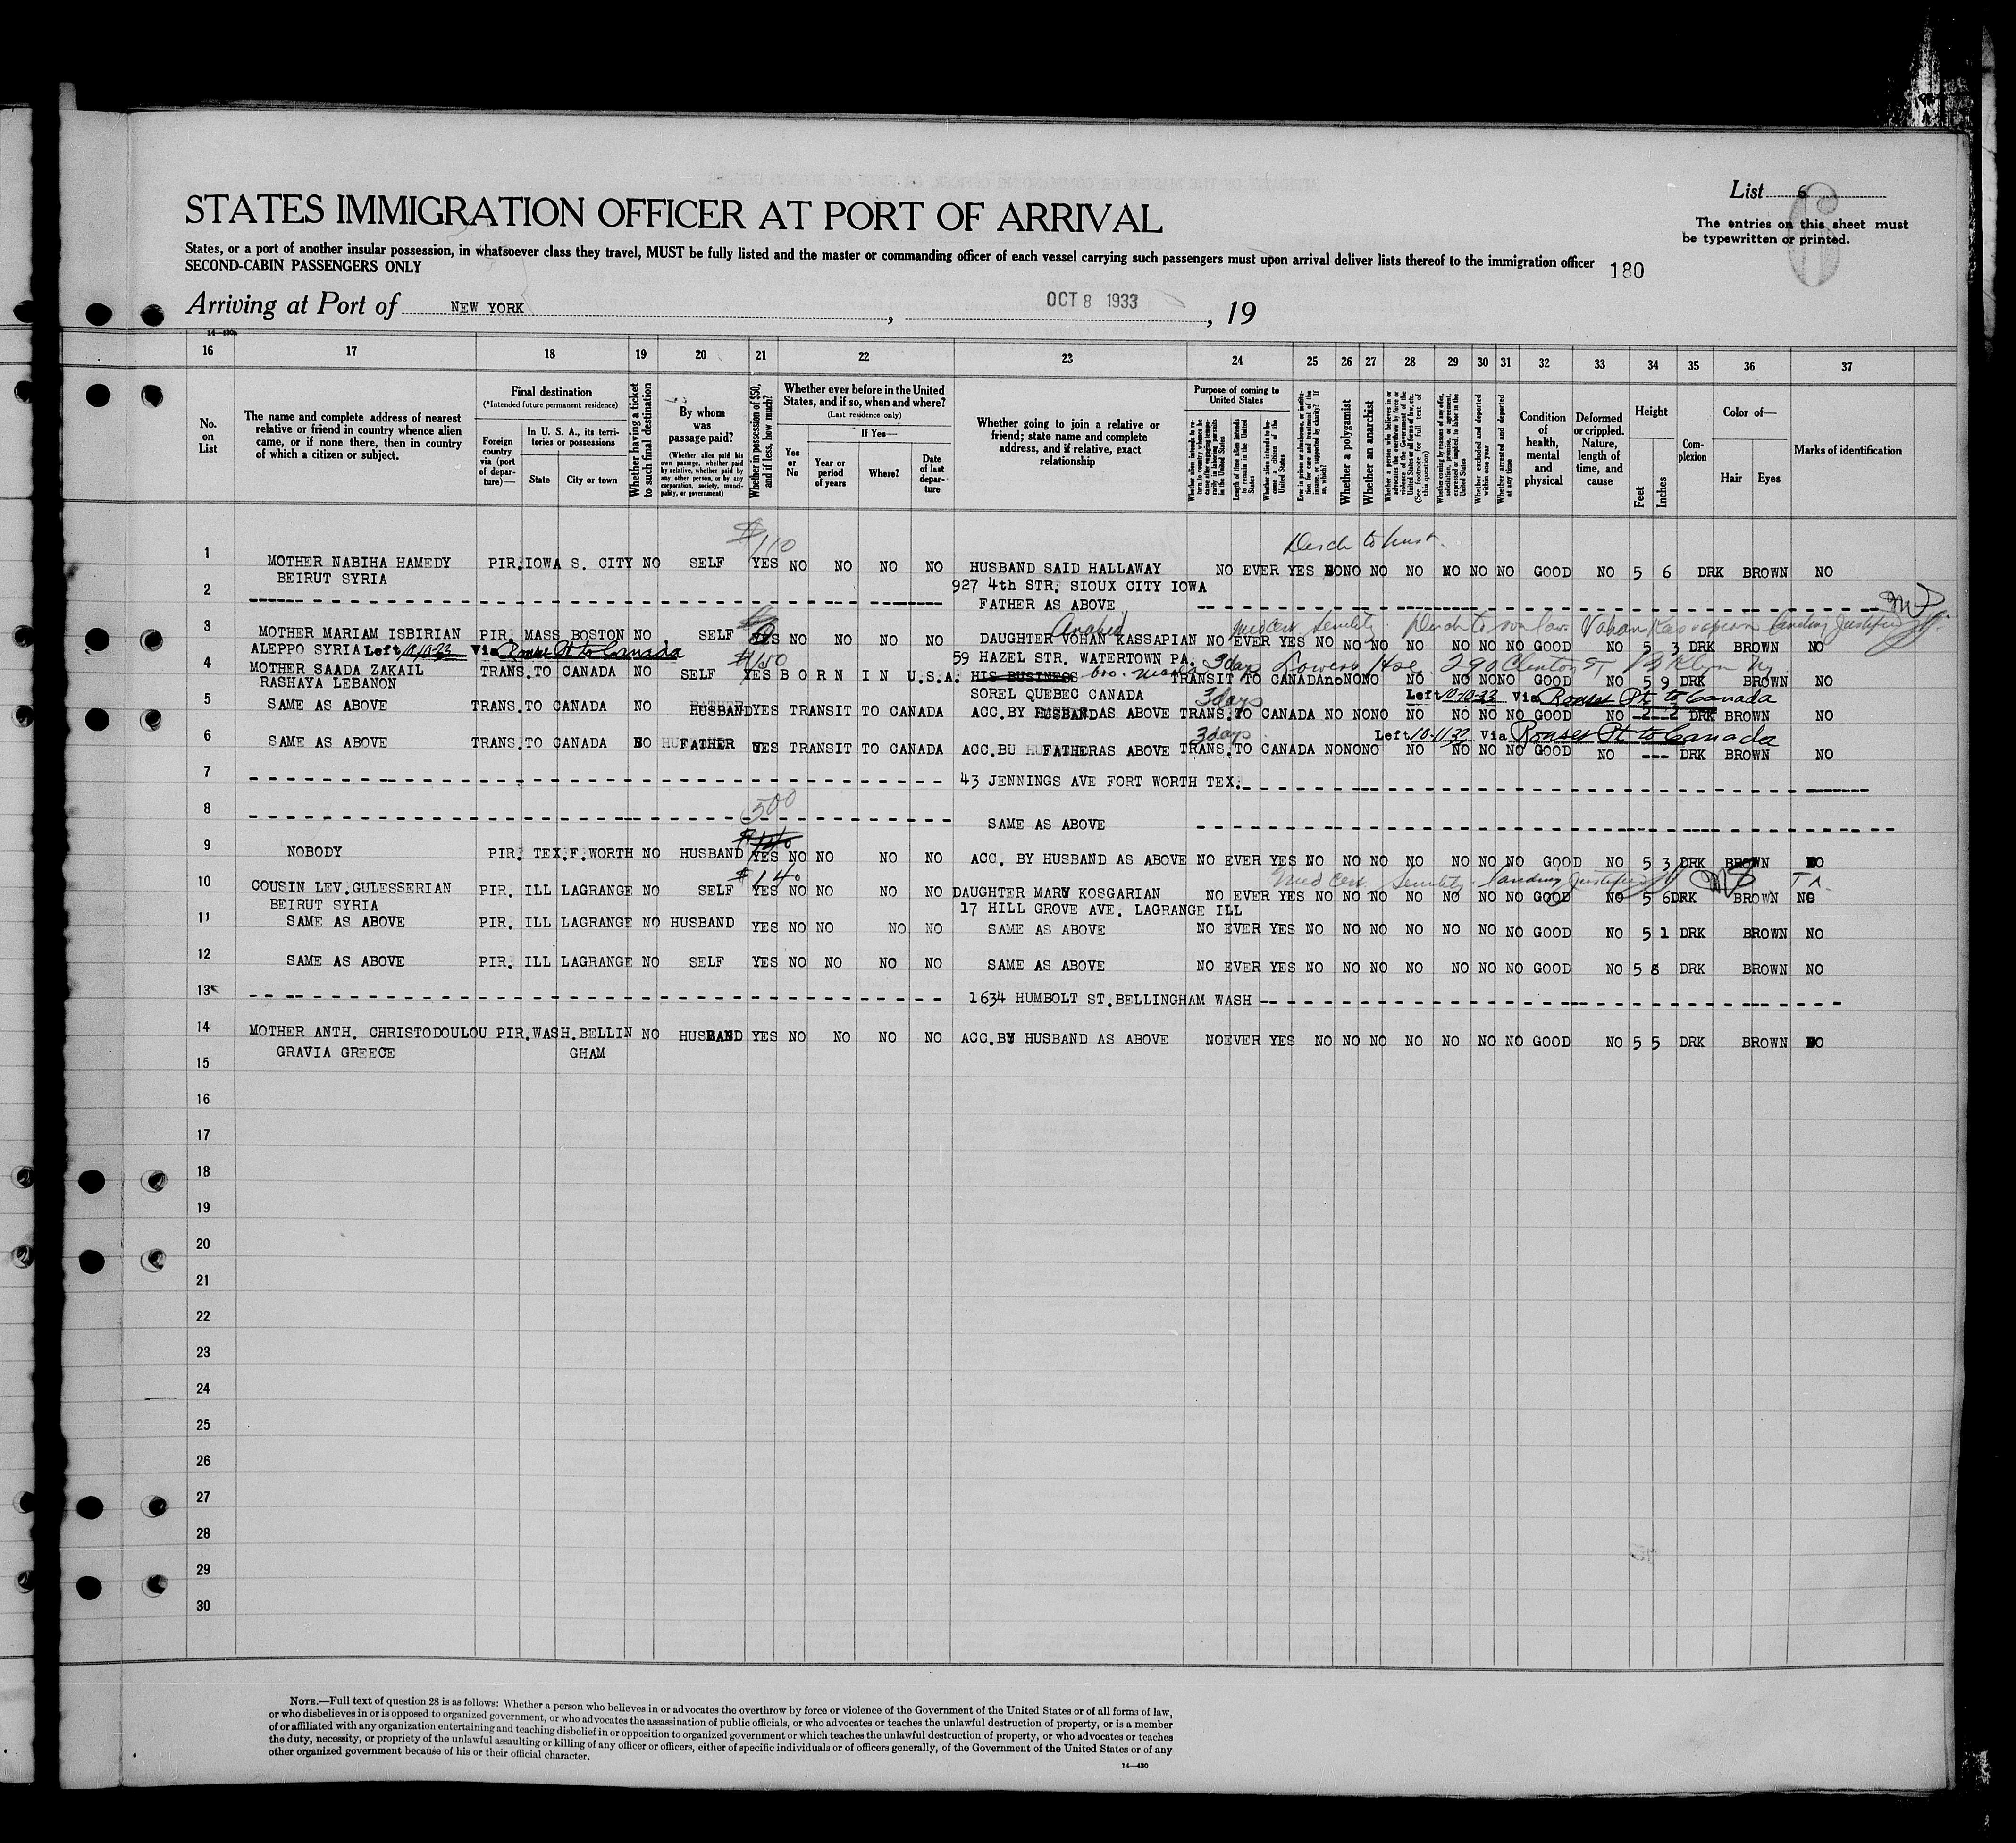 List 6
STATES IMMIGRATION OFFICER AT PORT OF ARRIVAL
The entries on this sheet must
be typewritten or printed.
States, or a port of another insular possession, in whatsoever class they travel, MUST be fully listed and the master or commanding officer of each vessel carrying such passengers must upon arrival deliver lists thereof to the immigration officer
SECOND-CABIN PASSENGERS ONLY
180
Arriving at Port of NEW YORK, OCT 8 1933, 19
14—430
16 17 18 19 20 21 22 23 24 25 26 27 28 29 30 31 32 33 34 35 36 37
No. on List
The name and complete address of nearest relative or friend in country whence alien came, or if none there, then in country of which a citizen or subject.
Final destination
(*Intended future permanent residence)
Foreign country via (port of departure)—
In U. S. A., its territories or possessions
State
City or town
Whether having a ticket to such final destination
By whom was passage paid?
(Whether alien paid his own passage, whether paid by relative, whether paid by any other person, or by any corporation, society, municipality, or government)
Whether in possession of $50, and if less, how much?
Whether ever before in the United States, and if so, when and where?
(Last residence only)
Yes or No
If Yes—
Year or period of years
Where?
Date of last departure
Whether going to join a relative or friend; state name and complete address, and if relative, exact relationship
Purpose of coming to United States
Whether alien intends to return to country whence he came after engaging temporarily in laboring pursuits in the United States
Length of time alien intends to remain in the United States
Whether alien intends to become a citizen of the United States
Ever in prison or almshouse, or institution for care and treatment of the insane, or supported by charity? If so, which?
Whether a polygamist
Whether an anarchist
Whether a person who believes in or advocates the overthrow by force or violence of the Government of the United States or all forms of law, etc. (See footnote for full text of this question)
Whether coming by reasons of any offer, solicitation, promise, or agreement, expressed or implied, to labor in the United States
Whether excluded and deported within one year
Whether arrested and deported at any time
Condition of health, mental and physical
Deformed or crippled. Nature, length of time, and cause
Height
Feet
Inches
Complexion
Color of—
Hair
Eyes
Marks of identification
$110
1 MOTHER NABIHA HAMEDY PIR. IOWA S. CITY NO SELF YES NO NO NO NO HUSBAND SAID HALLAWAY NO EVER YES NO NO NO NO NO NO NO GOOD NO 5 6 DRK BROWN NO
BEIRUT SYRIA 927 4th STR. SIOUX CITY IOWA
2 FATHER AS ABOVE
Med Cert Senility Landing Justified
3 MOTHER MARIAM ISBIRIAN PIR. MASS BOSTON NO SELF YES NO NO NO NO DAUGHTER VOHAN KASSAPIAN NO EVER YES NO NO NO NO NO NO NO GOOD NO 5 3 DRK BROWN NO
ALEPPO SYRIA Left 10-10-33 Via Rouses Pt to Canada $150 59 HAZEL STR. WATERTOWN PA. 3 days 290 Clinton ST Bklyn Ny
4 MOTHER SAADA ZAKAIL TRANS. TO CANADA NO SELF YES BORN IN U.S.A. HIS BUSINESS bro. TRANSIT TO CANADA NO NO NO NO NO NO NO GOOD NO 5 9 DRK BROWN NO
RASHAYA LEBANON SOREL QUEBEC CANADA 3 days Left 10-10-33 Via Rouses Pt to Canada
5 SAME AS ABOVE TRANS. TO CANADA NO HUSBAND YES TRANSIT TO CANADA ACC.BY HUSBAND AS ABOVE TRANS. TO CANADA NO NO NO NO NO NO NO GOOD NO 2 2 DRK BROWN NO
3 days Left 10-11-33 Via Rouses Pt to Canada
6 SAME AS ABOVE TRANS. TO CANADA NO FATHER YES TRANSIT TO CANADA ACC.BU FATHER AS ABOVE TRANS. TO CANADA NO NO NO NO NO NO NO GOOD NO --- DRK BROWN NO
7 43 JENNINGS AVE FORT WORTH TEX.
500
8 SAME AS ABOVE
9 NOBODY PIR. TEX. F. WORTH NO HUSBAND YES NO NO NO NO ACC. BY HUSBAND AS ABOVE NO EVER YES NO NO NO NO NO NO NO GOOD NO 5 3 DRK BROWN NO
$140 Med Cert Senility. Landing Justified
10 COUSIN LEV. GULESSERIAN PIR. ILL LAGRANGE NO SELF YES NO NO NO NO DAUGHTER MARY KOSGARIAN NO EVER YES NO NO NO NO NO NO NO GOOD NO 5 6 DRK BROWN NO
BEIRUT SYRIA 17 HILL GROVE AVE. LAGRANGE ILL
11 SAME AS ABOVE PIR. ILL LAGRANGE NO HUSBAND YES NO NO NO NO SAME AS ABOVE NO EVER YES NO NO NO NO NO NO NO GOOD NO 5 1 DRK BROWN NO
12 SAME AS ABOVE PIR. ILL LAGRANGE NO SELF YES NO NO NO NO SAME AS ABOVE NO EVER YES NO NO NO NO NO NO NO GOOD NO 5 8 DRK BROWN NO
13 1634 HUMBOLT ST. BELLINGHAM WASH
14 MOTHER ANTH. CHRISTODOULOU PIR. WASH. BELLIN NO HUSBAND YES NO NO NO NO ACC.BY HUSBAND AS ABOVE NO EVER YES NO NO NO NO NO NO NO GOOD NO 5 5 DRK BROWN NO
GRAVIA GREECE GHAM
15
16
17
18
19
20
21
22
23
24
25
26
27
28
29
30
NOTE.—Full text of question 28 is as follows: Whether a person who believes in or advocates the overthrow by force or violence of the Government of the United States or of all forms of law,
or who disbelieves in or is opposed to organized government, or who advocates the assassination of public officials, or who advocates or teaches the unlawful destruction of property, or is a member
of or affiliated with any organization entertaining and teaching disbelief in or opposition to organized government or which teaches the unlawful destruction of property, or who advocates or teaches
the duty, necessity, or propriety of the unlawful assaulting or killing of any officer or officers, either of specific individuals or of officers generally, of the Government of the United States or of any
other organized government because of his or their official character.
14—430